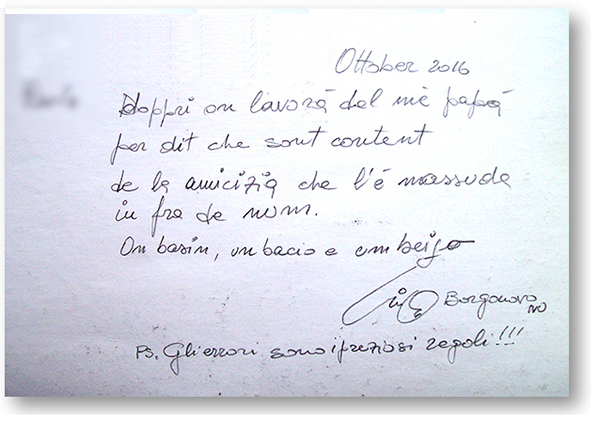 Ottober 2016
Doppri on lavorà del mè papà
per dit che sont content
de la amicizia che l'é nassuda
in fra de num.
On basin, un bacio e um beijo
Borgonovo
Ps. Gli errori sono i preziosi regali!!!